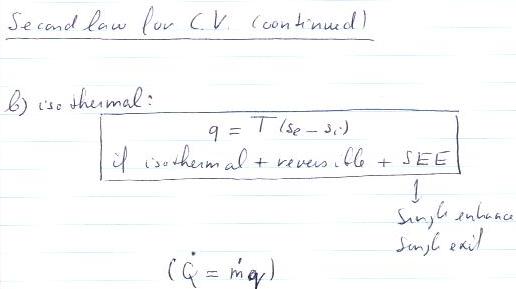 Second law for C.V. (continued)
b) isothermal:
q = T(se - si)
if isothermal + reversible + SEE
↓
Single entrance
Single exit
(Q̇ = ṁq)